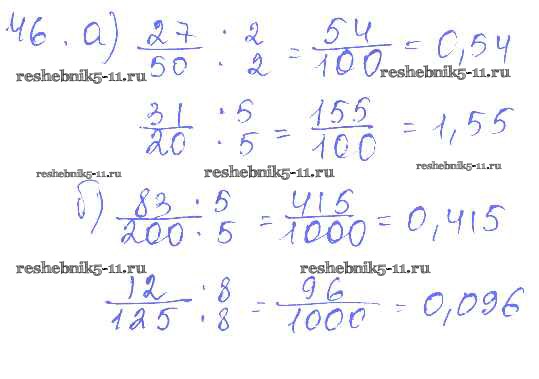 46. а) 27/50 · 2/2 = 54/100 = 0,54
reshebnik5-11.ru reshebnik5-11.ru
31/20 · 5/5 = 155/100 = 1,55
reshebnik5-11.ru reshebnik5-11.ru reshebnik5-11.ru
б) 83/200 · 5/5 = 415/1000 = 0,415
reshebnik5-11.ru reshebnik5-11.ru
12/125 · 8/8 = 96/1000 = 0,096